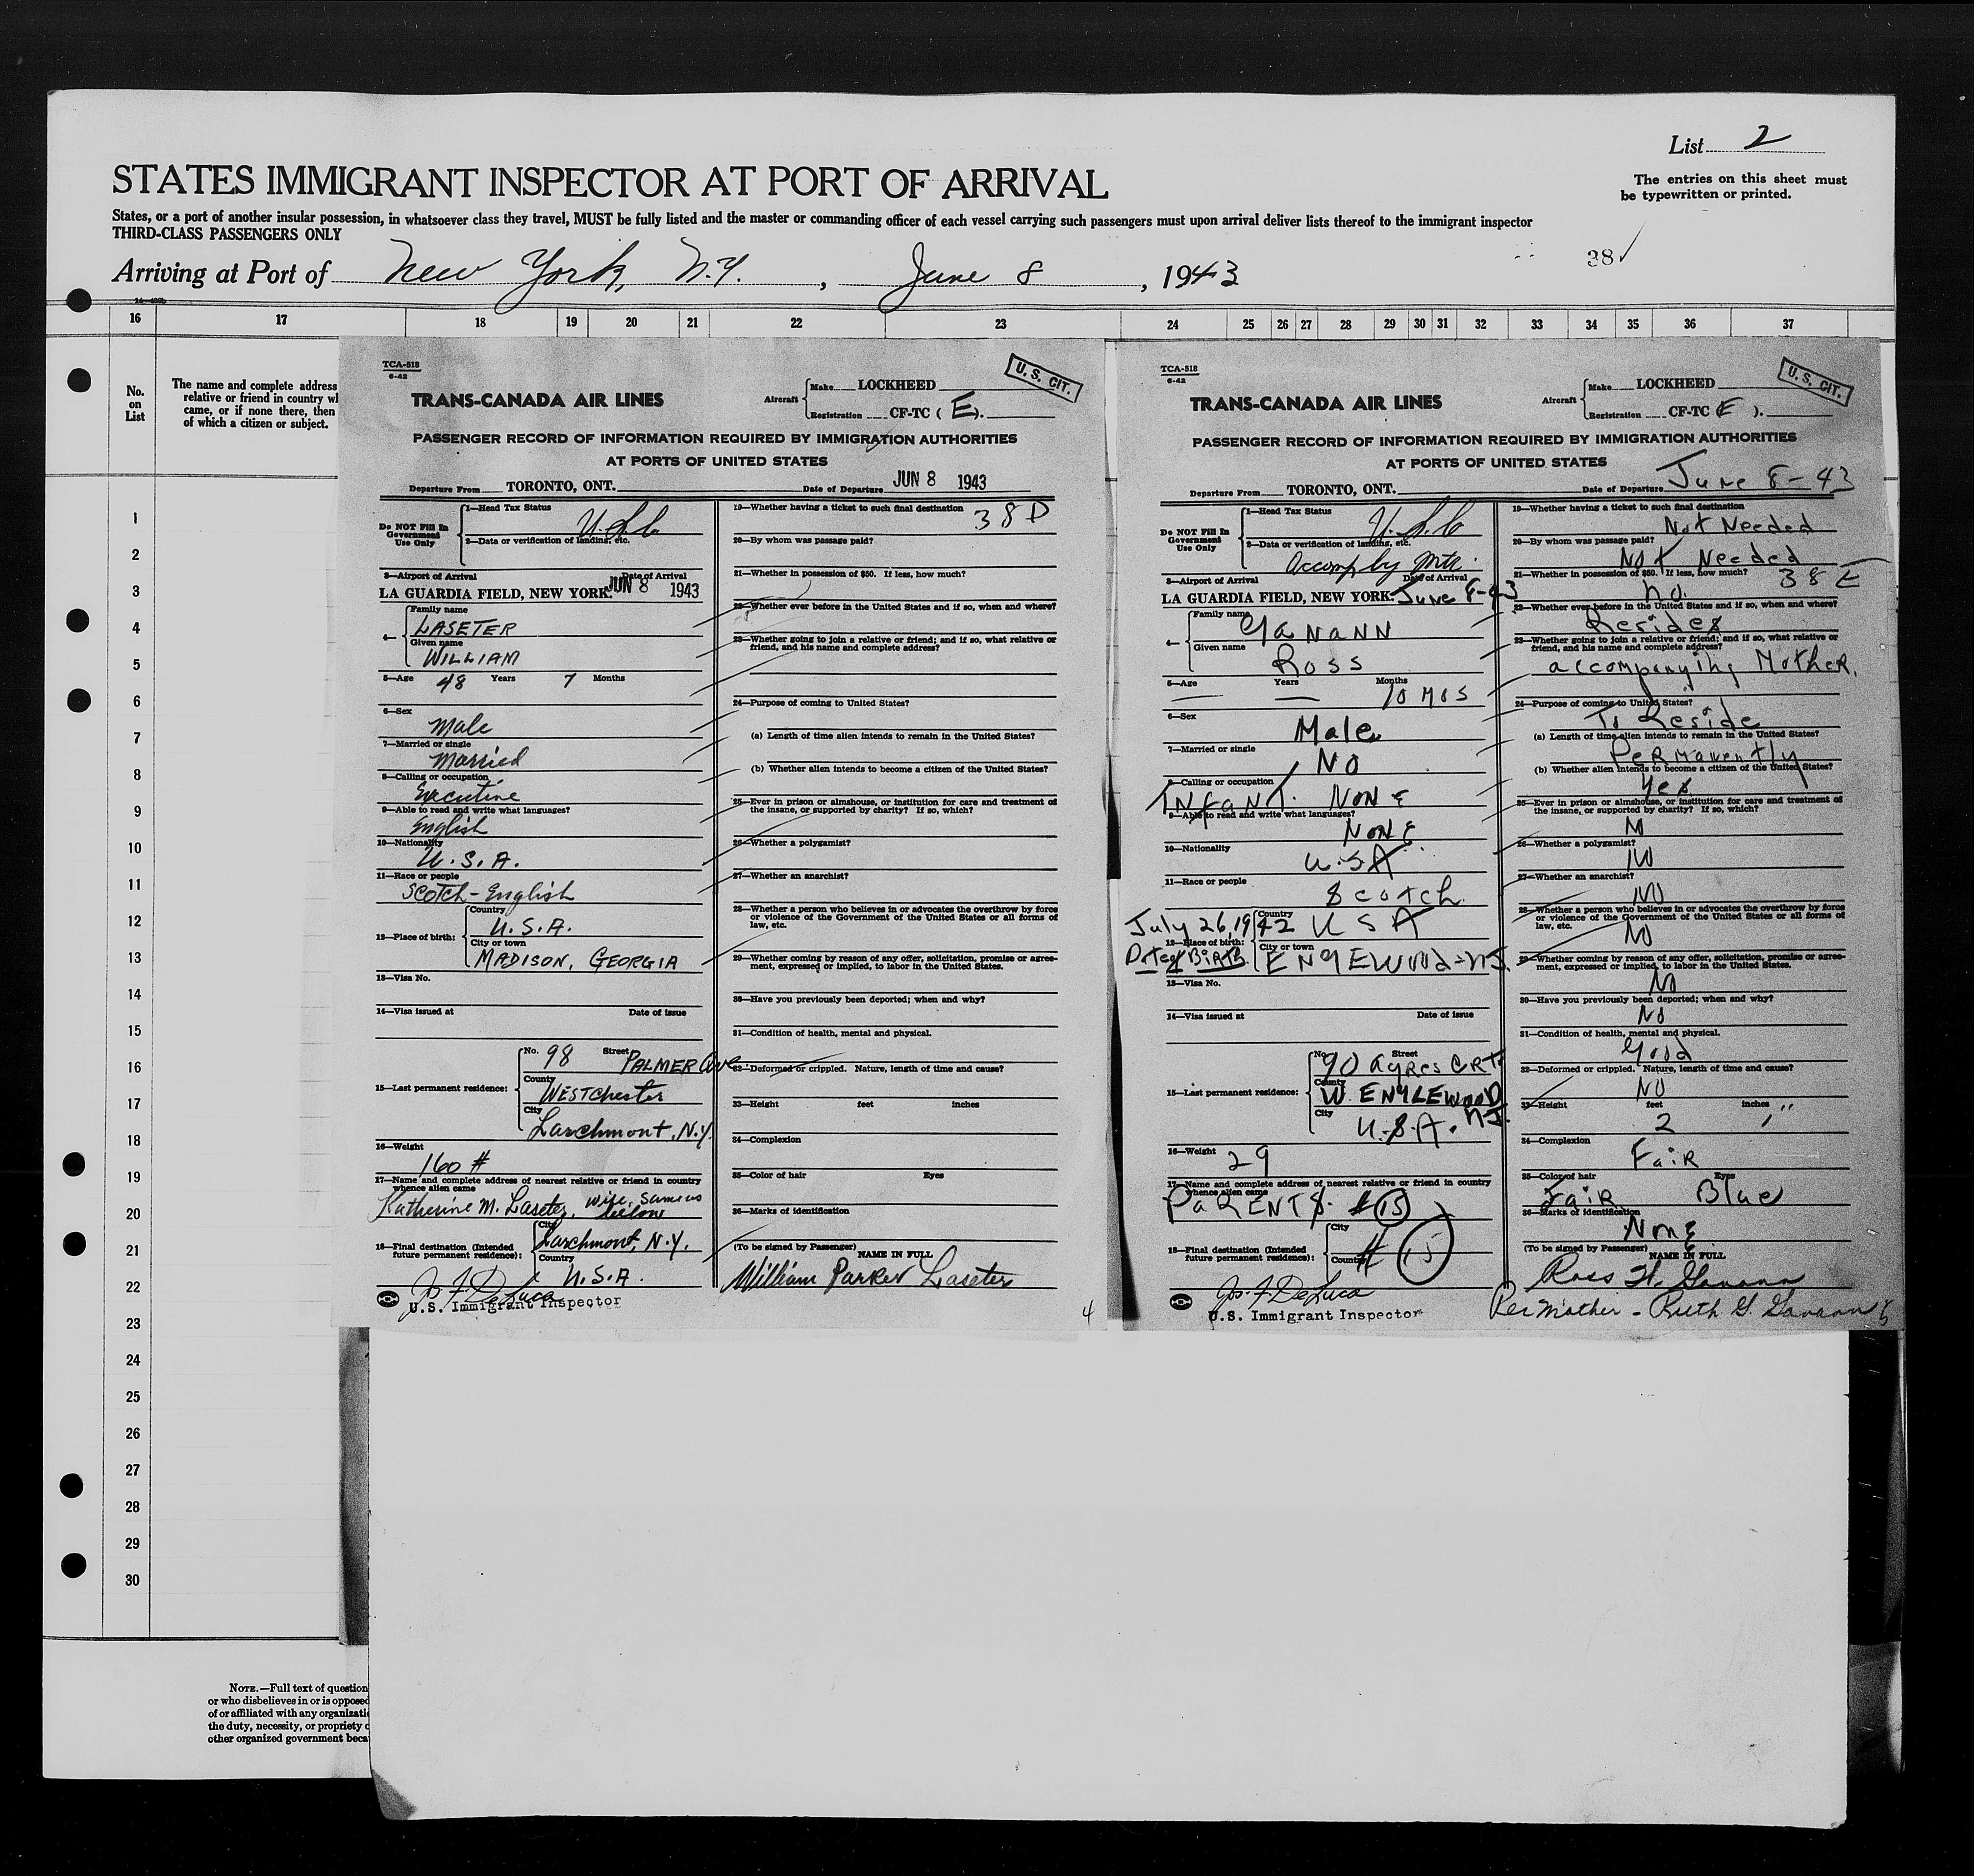 List 2
The entries on this sheet must
be typewritten or printed.
STATES IMMIGRANT INSPECTOR AT PORT OF ARRIVAL
States, or a port of another insular possession, in whatsoever class they travel, MUST be fully listed and the master or commanding officer of each vessel carrying such passengers must upon arrival deliver lists thereof to the immigrant inspector
THIRD-CLASS PASSENGERS ONLY
38✓
Arriving at Port of New York, N.Y. , June 8 , 1943
16 17 18 19 20 21 22 23 24 25 26 27 28 29 30 31 32 33 34 35 36 37
No.
on
List
The name and complete address
relative or friend in country wh
came, or if none there, then
of which a citizen or subject.
1
2
3
4
5
6
7
8
9
10
11
12
13
14
15
16
17
18
19
20
21
22
23
24
25
26
27
28
29
30
NOTE.—Full text of question
or who disbelieves in or is opposed
of or affiliated with any organizati
the duty, necessity, or propriety o
other organized government beca
TCA-518
6-42
U. S. CIT.
TRANS-CANADA AIR LINES
Aircraft Make LOCKHEED
Registration CF-TC ( E ).
PASSENGER RECORD OF INFORMATION REQUIRED BY IMMIGRATION AUTHORITIES
AT PORTS OF UNITED STATES
Departure From TORONTO, ONT. Date of Departure JUN 8 1943
Do NOT Fill In
Government
Use Only
1—Head Tax Status
U.S.C
2—Data or verification of landing, etc.
3—Airport of Arrival Date of Arrival
LA GUARDIA FIELD, NEW YORK. JUN 8 1943
4— Family name
LASETER
Given name
WILLIAM
5—Age 48 Years 7 Months
6—Sex
Male
7—Married or single
Married
8—Calling or occupation
Executive
9—Able to read and write what languages?
English
10—Nationality
U.S.A.
11—Race or people
Scotch-English
12—Place of birth: Country
U.S.A.
City or town
MADISON, GEORGIA
13—Visa No.
14—Visa issued at Date of issue
15—Last permanent residence: No. 98 Street PALMER Ave
County
WESTChester
City
Larchmont, N.Y.
16—Weight
160 #
17—Name and complete address of nearest relative or friend in country
whence alien came
Katherine M. Laseter, wife, same as
below
18—Final destination (Intended
future permanent residence): City
Larchmont, N.Y.
Country
U.S.A.
Jos. F. DeLuca
U.S. Immigrant Inspector
19—Whether having a ticket to such final destination
38 D
20—By whom was passage paid?
21—Whether in possession of $50. If less, how much?
22—Whether ever before in the United States and if so, when and where?
23—Whether going to join a relative or friend; and if so, what relative or
friend, and his name and complete address?
24—Purpose of coming to United States?
(a) Length of time alien intends to remain in the United States?
(b) Whether alien intends to become a citizen of the United States?
25—Ever in prison or almshouse, or institution for care and treatment of
the insane, or supported by charity? If so, which?
26—Whether a polygamist?
27—Whether an anarchist?
28—Whether a person who believes in or advocates the overthrow by force
or violence of the Government of the United States or all forms of
law, etc.
29—Whether coming by reason of any offer, solicitation, promise or agree-
ment, expressed or implied, to labor in the United States.
30—Have you previously been deported; when and why?
31—Condition of health, mental and physical.
32—Deformed or crippled. Nature, length of time and cause?
33—Height feet inches
34—Complexion
35—Color of hair Eyes
36—Marks of identification
(To be signed by Passenger) NAME IN FULL
William Parker Laseter
4
TCA-518
6-42
U. S. CIT.
TRANS-CANADA AIR LINES
Aircraft Make LOCKHEED
Registration CF-TC ( E ).
PASSENGER RECORD OF INFORMATION REQUIRED BY IMMIGRATION AUTHORITIES
AT PORTS OF UNITED STATES
Departure From TORONTO, ONT. Date of Departure June 8-43
Do NOT Fill In
Government
Use Only
1—Head Tax Status
U.S.C
2—Data or verification of landing, etc.
Accomp by Mtr.
3—Airport of Arrival Date of Arrival
LA GUARDIA FIELD, NEW YORK. June 8-43
4— Family name
GANANN
Given name
Ross
5—Age — Years — Months 10 MOS
6—Sex
Male
7—Married or single
NO
8—Calling or occupation
INFANT. NONE
9—Able to read and write what languages?
NONE
10—Nationality
U.S.A
11—Race or people
Scotch
July 26, 1942
Date of BIRTH
12—Place of birth: Country
U S A
City or town
ENGLEWOOD-N.J.
13—Visa No.
14—Visa issued at Date of issue
15—Last permanent residence: No. 90 Street AYRES CRT
County
W. ENGLEWOOD
City N.J.
U.S.A.
16—Weight 29
17—Name and complete address of nearest relative or friend in country
whence alien came
PARENTS. # 15
18—Final destination (Intended
future permanent residence): City
Country # 15
Jos. F. DeLuca
U.S. Immigrant Inspector
19—Whether having a ticket to such final destination
Not Needed
20—By whom was passage paid?
Not Needed
21—Whether in possession of $50. If less, how much? 38 E
No.
22—Whether ever before in the United States and if so, when and where?
Resides
23—Whether going to join a relative or friend; and if so, what relative or
friend, and his name and complete address?
accompanying MotheR.
24—Purpose of coming to United States?
To Reside
(a) Length of time alien intends to remain in the United States?
PeRmanently
(b) Whether alien intends to become a citizen of the United States?
Yes
25—Ever in prison or almshouse, or institution for care and treatment of
the insane, or supported by charity? If so, which?
No
26—Whether a polygamist?
No
27—Whether an anarchist?
NO
28—Whether a person who believes in or advocates the overthrow by force
or violence of the Government of the United States or all forms of
law, etc.
NO
29—Whether coming by reason of any offer, solicitation, promise or agree-
ment, expressed or implied, to labor in the United States.
NO
30—Have you previously been deported; when and why?
No
31—Condition of health, mental and physical.
Good
32—Deformed or crippled. Nature, length of time and cause?
NO
33—Height feet inches
2 1"
34—Complexion
FaiR
35—Color of hair Eyes
FaiR Blue
36—Marks of identification
None
(To be signed by Passenger) NAME IN FULL
Ross H. Ganann
Per Mother - Ruth G. Ganann
5